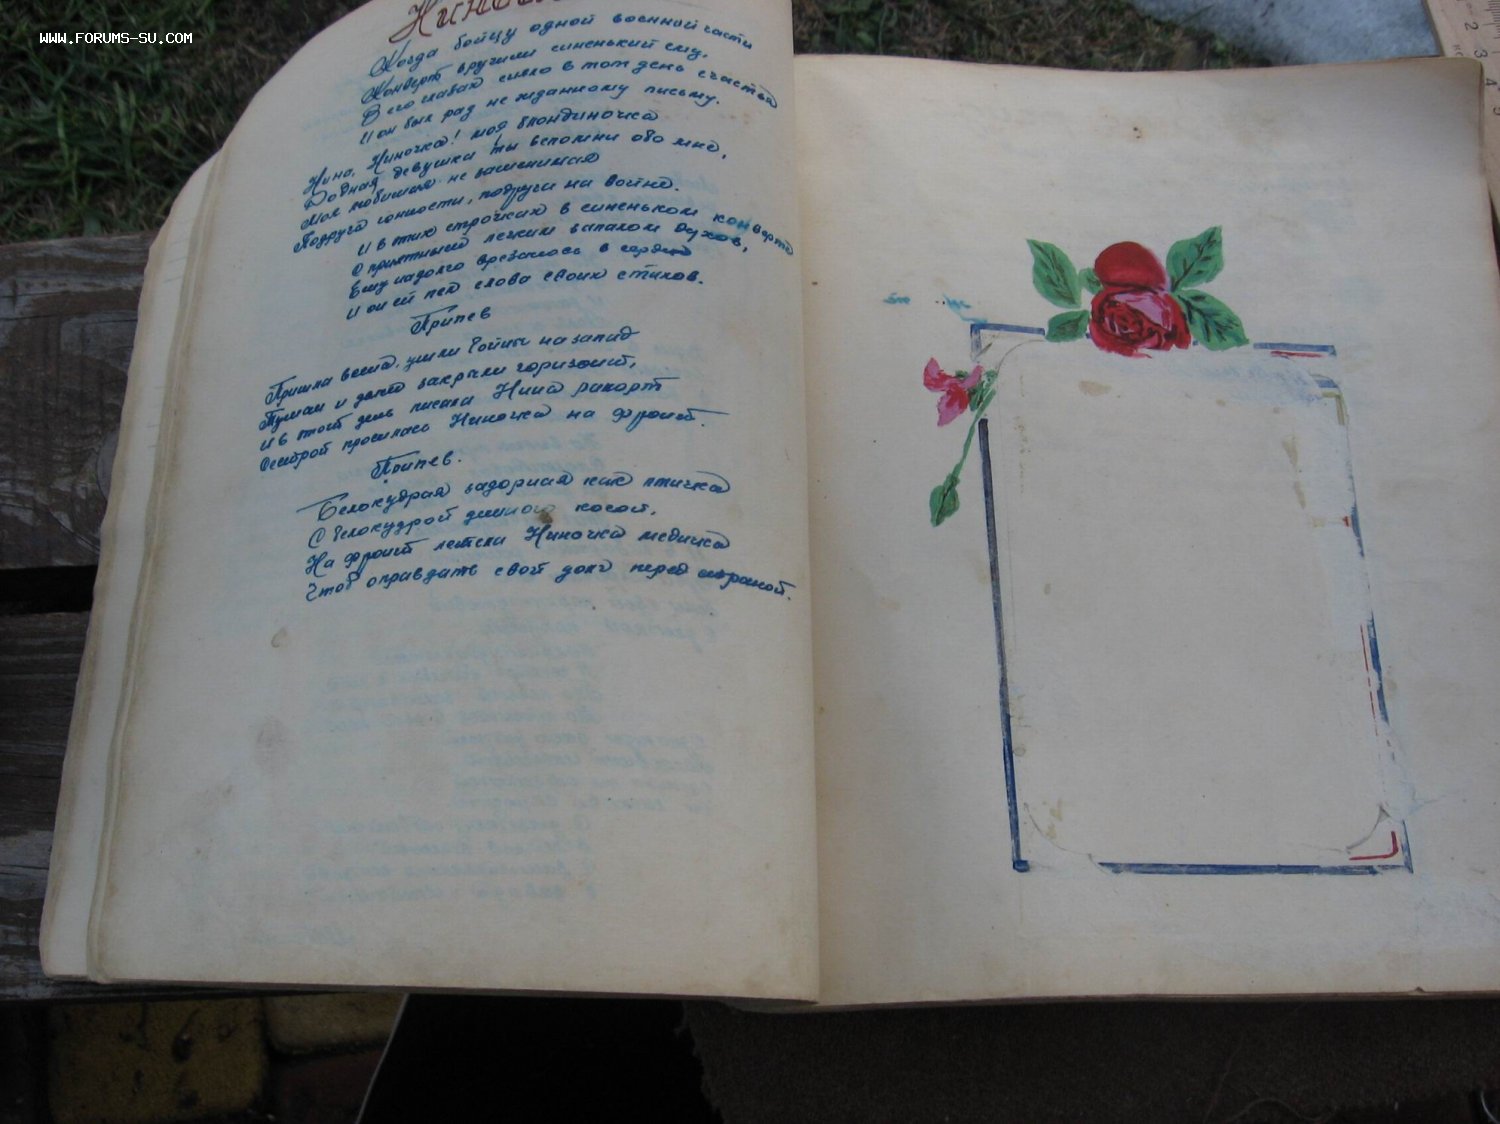 WWW.FORUMS-SU.COM
Когда бойцу одной военной части
Конверт вручили синенький ему,
В его глазах сияло в тот день счастья
И он был рад не жданному письму.
Нина, Ниночка! моя блондиночка
Родная девушка ты вспомни обо мне,
Моя любимая не заменимая
Подруга юности, подруга на войне.
И в тих строчках в синеньком конверте
С приятным легким запахом духов,
Ему надолго врезалось в сердце
И он ей пел слова своих стихов.
Припев
Пришла весна, ушли бойцы на запад
Туман и закрыли горизонт,
И в тот день писала Нина рапорт
Сестрой просилась Ниночка на фронт.
Припев.
Белокудрая задорная как птичка
С белокудрой длинною косой,
На фронт летела Ниночка медичка
Чтоб оправдать свой долг перед страной.
2
3
4
5